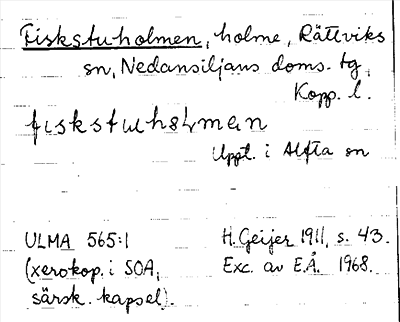 Fiskstuholmen, holme, Rättviks
sn, Nedansiljans doms. tg,
Kopp. l.
fiskstuhoLmen
Uppt. i Alfta sn
ULMA 565:1 H. Geijer 1911, s. 43.
(xerokop. i SOA, Exc. av E.Å. 1968.
särsk. kapsel).